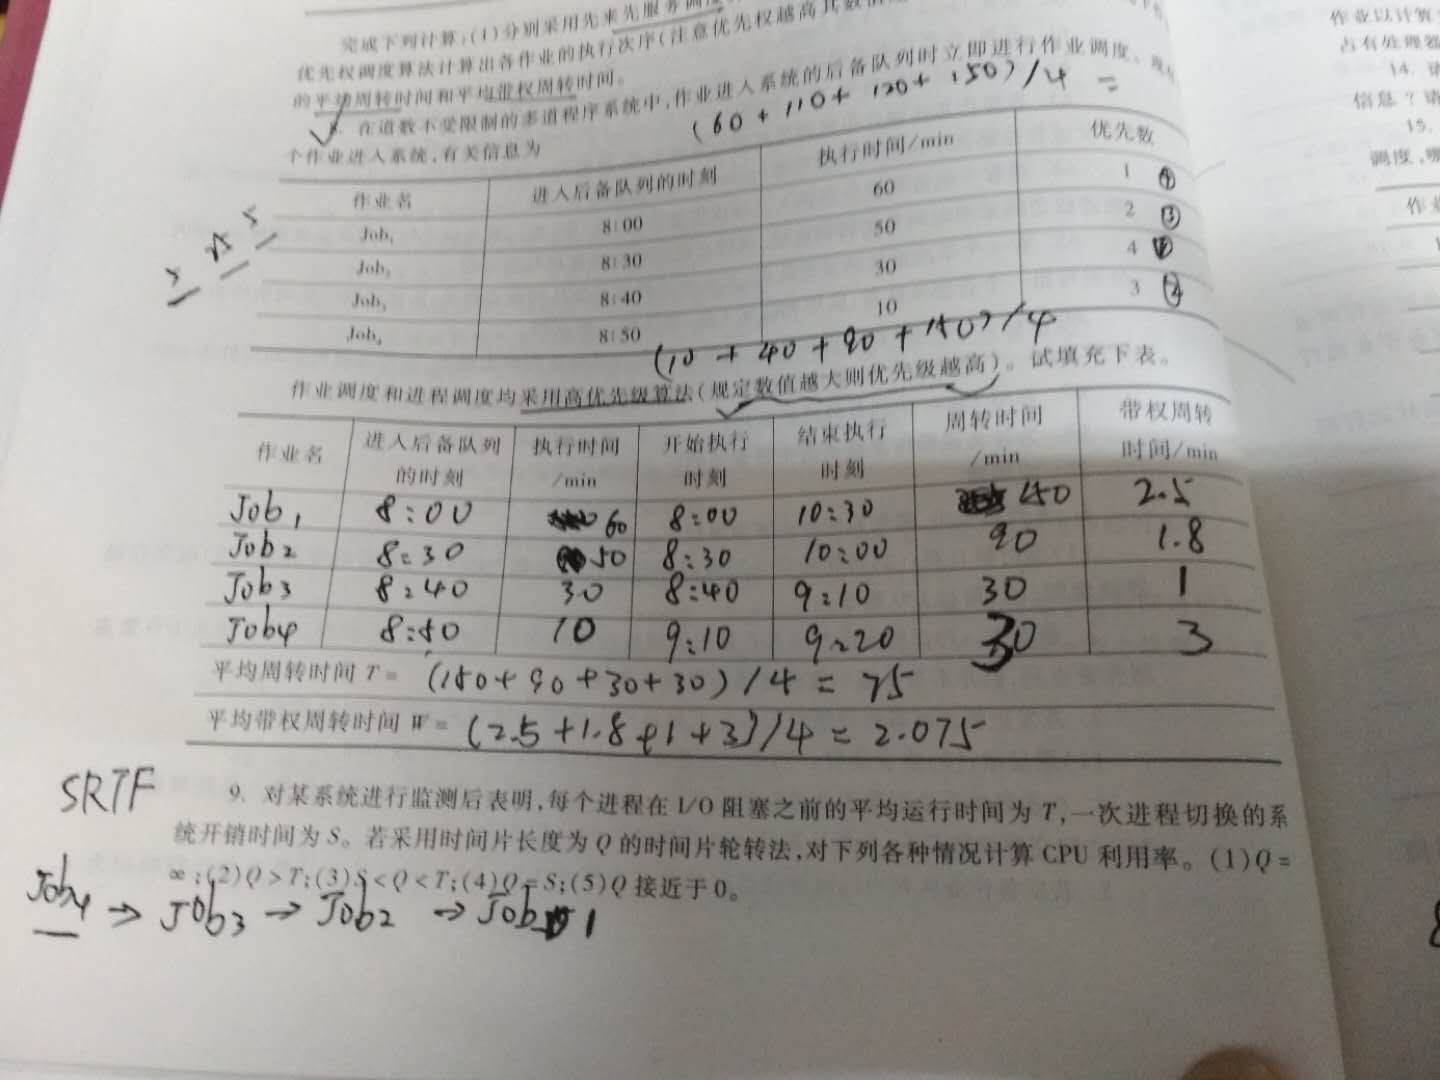 完成下列计算:(1)分别采用先来先服务调度
优先权调度算法计算出各作业的执行次序(注意优先权越高其数值
的平均周转时间和平均带权周转时间。
8. 在道数不受限制的多道程序系统中,作业进入系统的后备队列时立即进行作业调度。现有
(60 + 110 + 120 + 150) / 4 =
个作业进入系统,有关信息为
作业名 进入后备队列的时刻 执行时间/min 优先数
Job₁ 8:00 60 1 ④
Job₂ 8:30 50 2 ③
Job₃ 8:40 30 4
Job₄ 8:50 10 3 ②
(10 + 40 + 90 + 150) / 4
作业调度和进程调度均采用高优先级算法(规定数值越大则优先级越高)。试填充下表。
作业名 进入后备队列的时刻 执行时间/min 开始执行时刻 结束执行时刻 周转时间/min 带权周转时间/min
Job1 8:00 60 8:00 10:30 150 2.5
Job2 8:30 50 8:30 10:00 90 1.8
Job3 8:40 30 8:40 9:10 30 1
Job4 8:50 10 9:10 9:20 30 3
平均周转时间 T= (150+90+30+30)/4 = 75
平均带权周转时间 W= (2.5+1.8+1+3)/4 = 2.075
SRTF
9. 对某系统进行监测后表明,每个进程在 I/O 阻塞之前的平均运行时间为 T,一次进程切换的系
统开销时间为 S。若采用时间片长度为 Q 的时间片轮转法,对下列各种情况计算 CPU 利用率。(1)Q=
∞;(2)Q>T;(3)S<Q<T;(4)Q=S;(5)Q 接近于0。
Job4 → Job3 → Job2 → Job1
作业以计算
占有处理器
14.
信息?请
15.
调度,哪